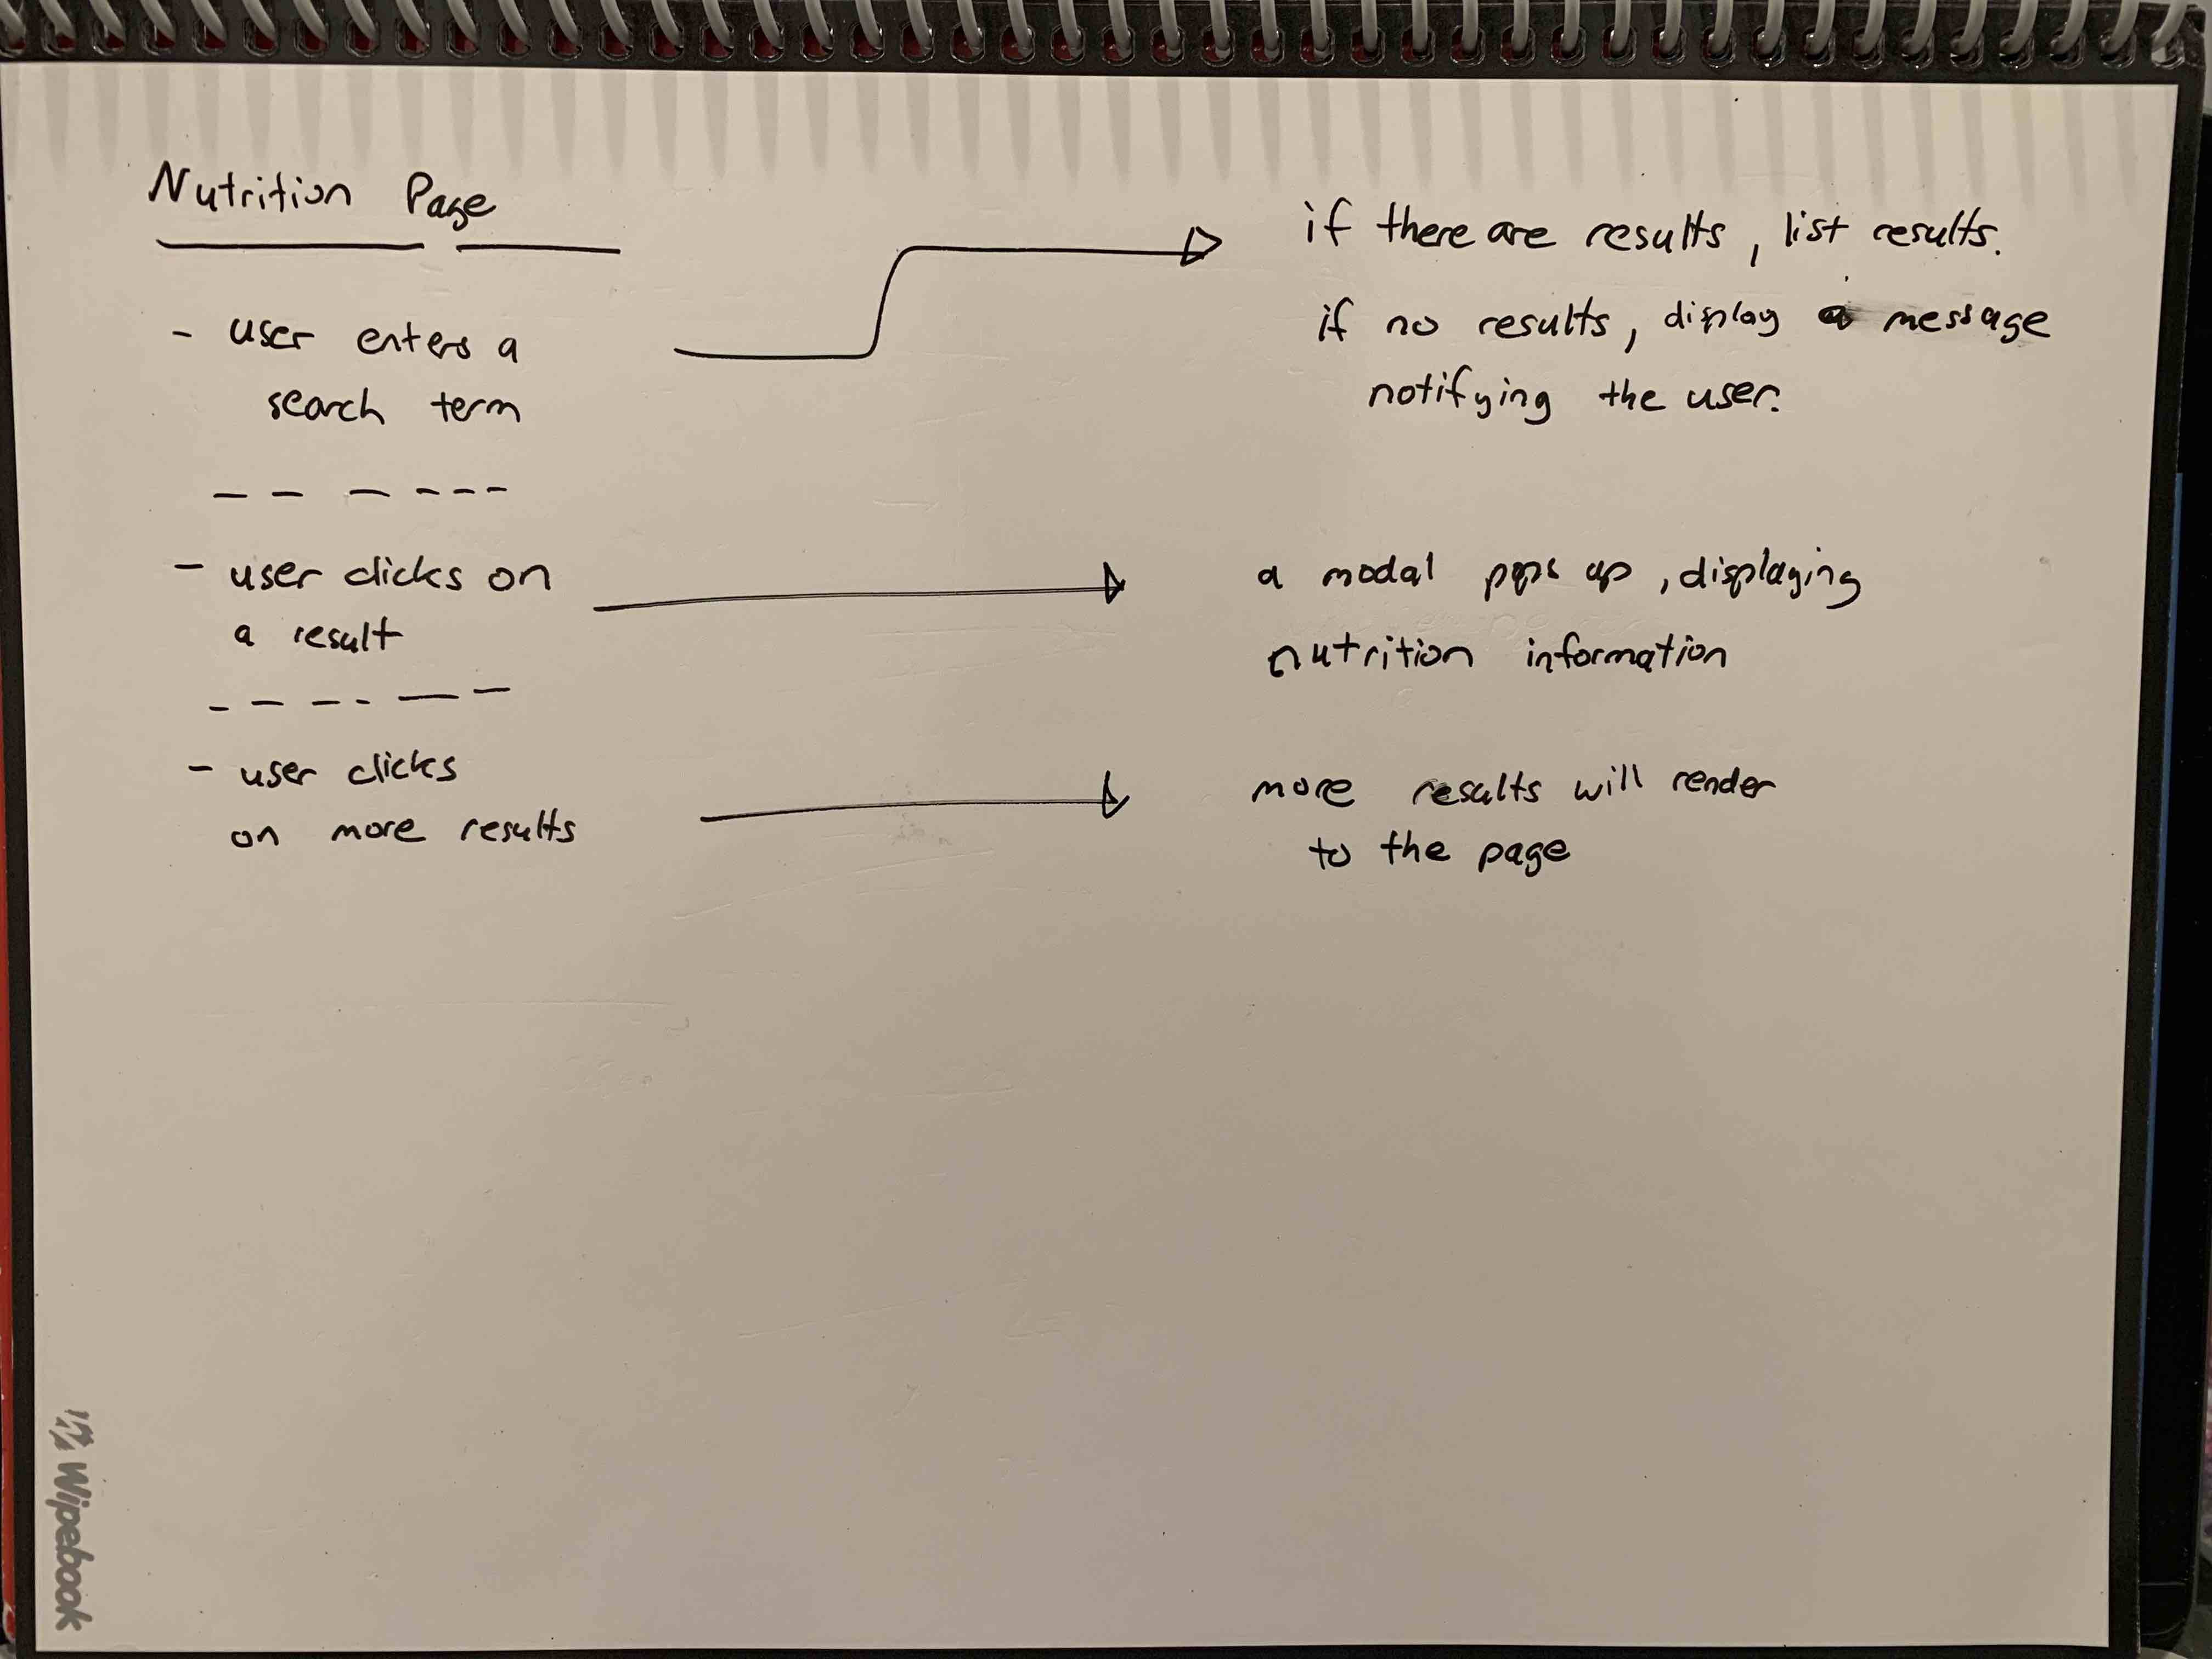 Nutrition Page
- user enters a
search term
if there are results, list results.
if no results, display a message
notifying the user.
- user clicks on
a result
a modal pops up, displaying
nutrition information
- user clicks
on more results
more results will render
to the page
Wipebook